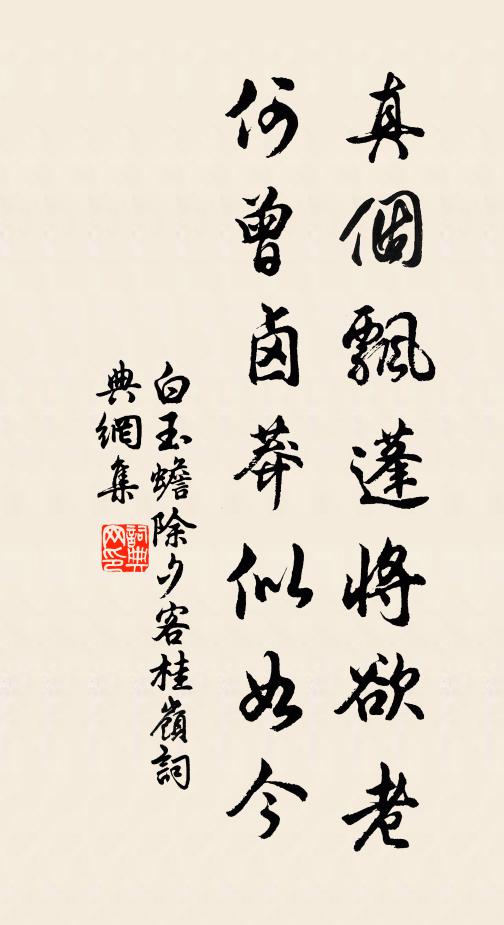 真個飄蓬將欲老
何曾鹵莽似如今
白玉蟾除夕客桂嶺詞
典網集
詞典網印